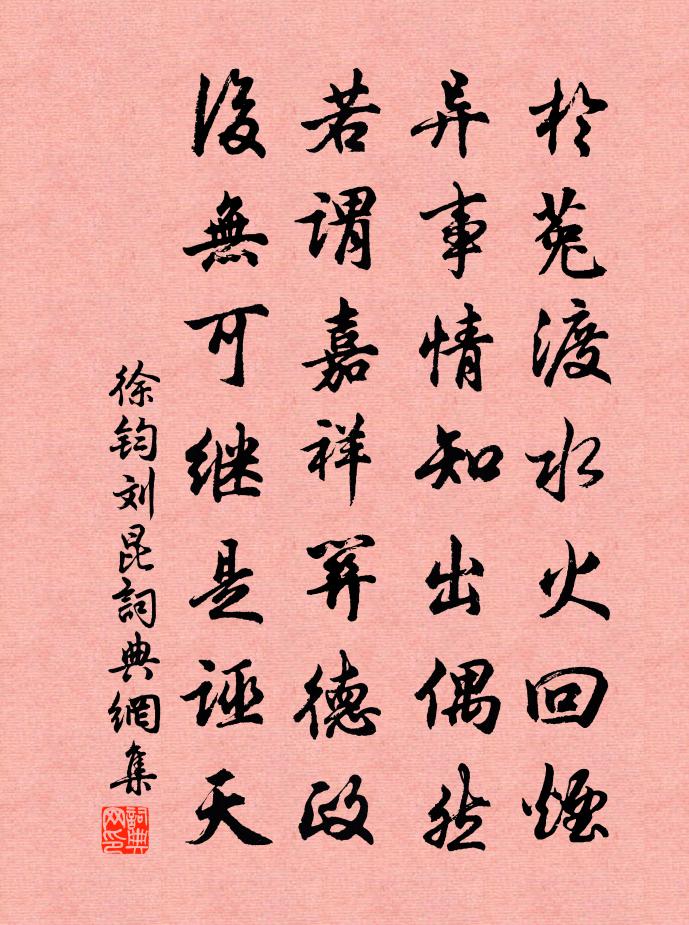 於菟渡水火回煙
异事情知出偶然
若谓嘉祥関德政
後無可继是诬天
徐钧刘昆詞典網集
詞典网印